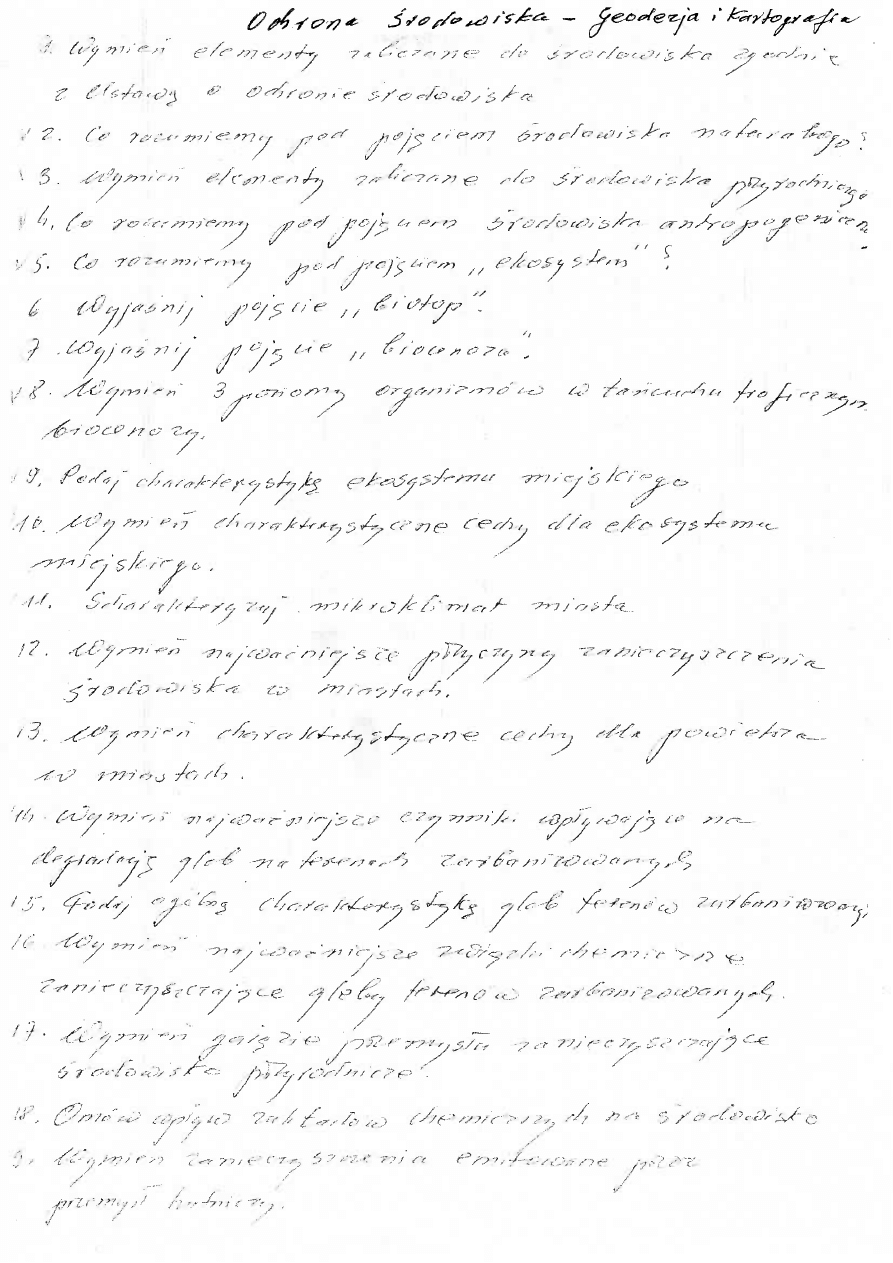 Ochrona Środowiska - Geodezja i Kartografia
1. Wymień elementy zaliczane do środowiska zgodnie
z Ustawą o ochronie środowiska
v 2. Co rozumiemy pod pojęciem środowiska naturalnego?
3. Wymień elementy zaliczane do środowiska przyrodniczego
v 4. Co rozumiemy pod pojęciem środowiska antropogeniczn.
v 5. Co rozumiemy pod pojęciem „ekosystem"?
6 Wyjaśnij pojęcie „biotop".
7 Wyjaśnij pojęcie „biocenoza".
v 8. Wymień 3 poziomy organizmów w łańcuchu troficznym
biocenozy.
v 9. Podaj charakterystykę ekosystemu miejskiego
10. Wymień charakterystyczne cechy dla ekosystemu
miejskiego.
11. Scharakteryzuj mikroklimat miasta
12. Wymień najważniejsze przyczyny zanieczyszczenia
środowiska w miastach.
13. Wymień charakterystyczne cechy dla powietrza
w miastach.
14. Wymień najważniejsze czynniki wpływające na
degradację gleb na terenach zurbanizowanych
15. Podaj ogólną charakterystykę gleb terenów zurbanizowanych
16 Wymień najważniejsze związki chemiczne
zanieczyszczające gleby terenów zurbanizowanych.
17. Wymień gałęzie przemysłu zanieczyszczające
środowisko przyrodnicze.
18. Omów wpływ zakładów chemicznych na środowisko
9. Wymień zanieczyszczenia emitowane przez
przemysł hutniczy.